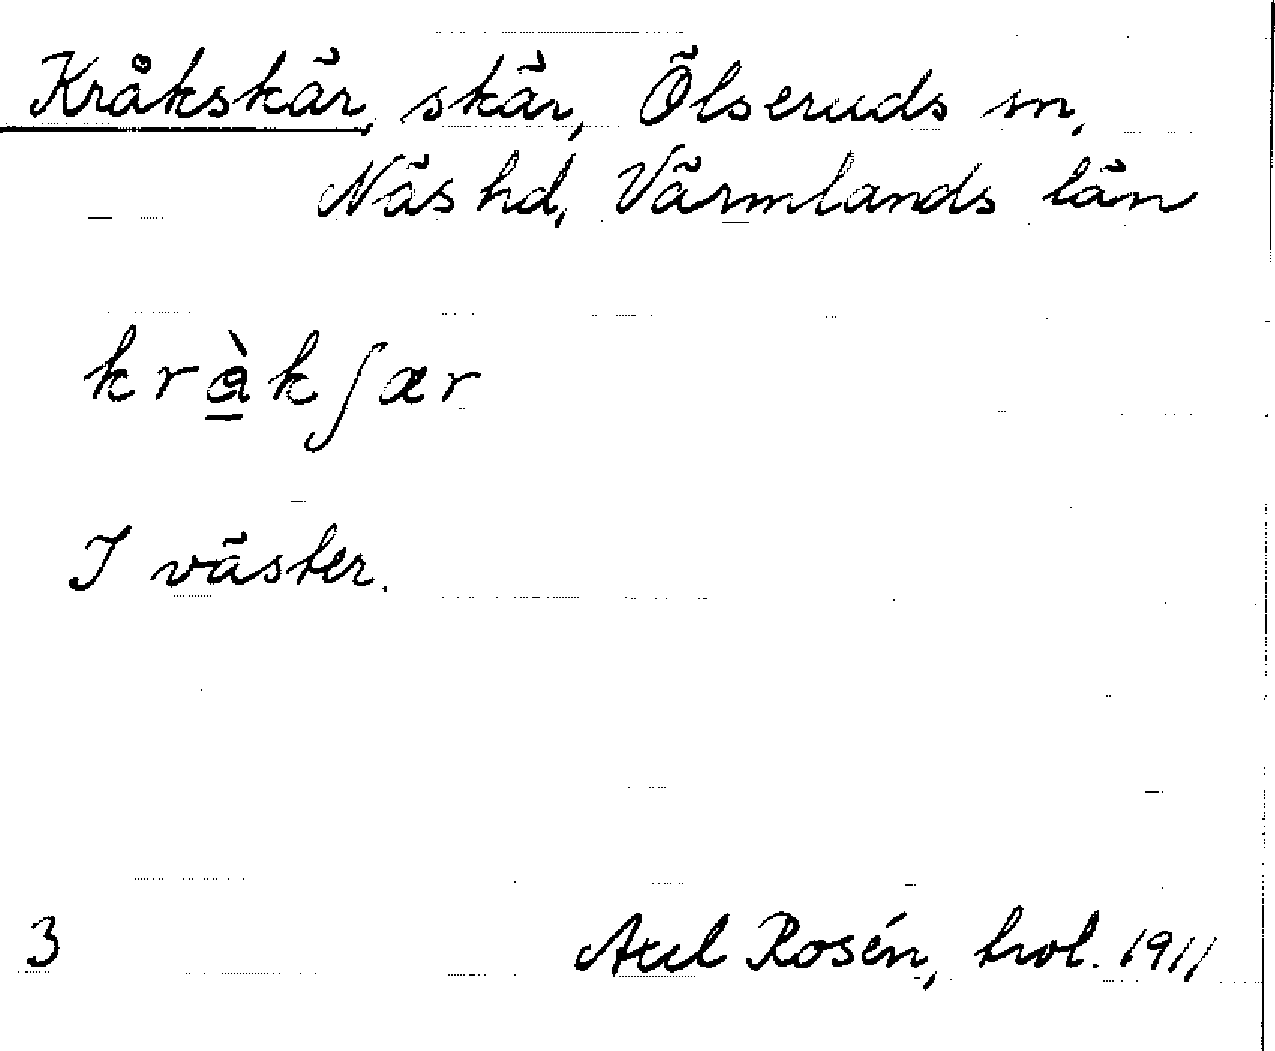 Kråkskär, skär, Ölseruds sn,
Näs hd, Värmlands län
krå̀kʃær
I väster.
3 Axel Rosén, trol. 1911